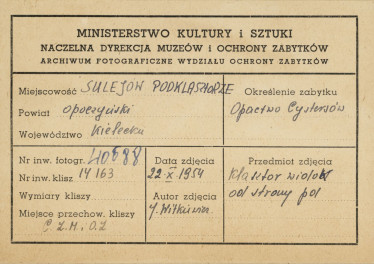 MINISTERSTWO KULTURY i SZTUKI
NACZELNA DYREKCJA MUZEÓW I OCHRONY ZABYTKÓW
ARCHIWUM FOTOGRAFICZNE WYDZIAŁU OCHRONY ZABYTKÓW
Miejscowość SULEJÓW PODKLASZTORZE
Powiat opoczyński
Województwo Kielecki
Określenie zabytku
Opactwo Cystersów
Nr inw. fotogr. 40588
Nr inw. klisz 14163
Wymiary kliszy
Miejsce przechow. kliszy
C.Z.M.i O.Z
Data zdjęcia
22 X 1954
Autor zdjęcia
J. Witkiewicz
Przedmiot zdjęcia
Klasztor widok
od strony pd